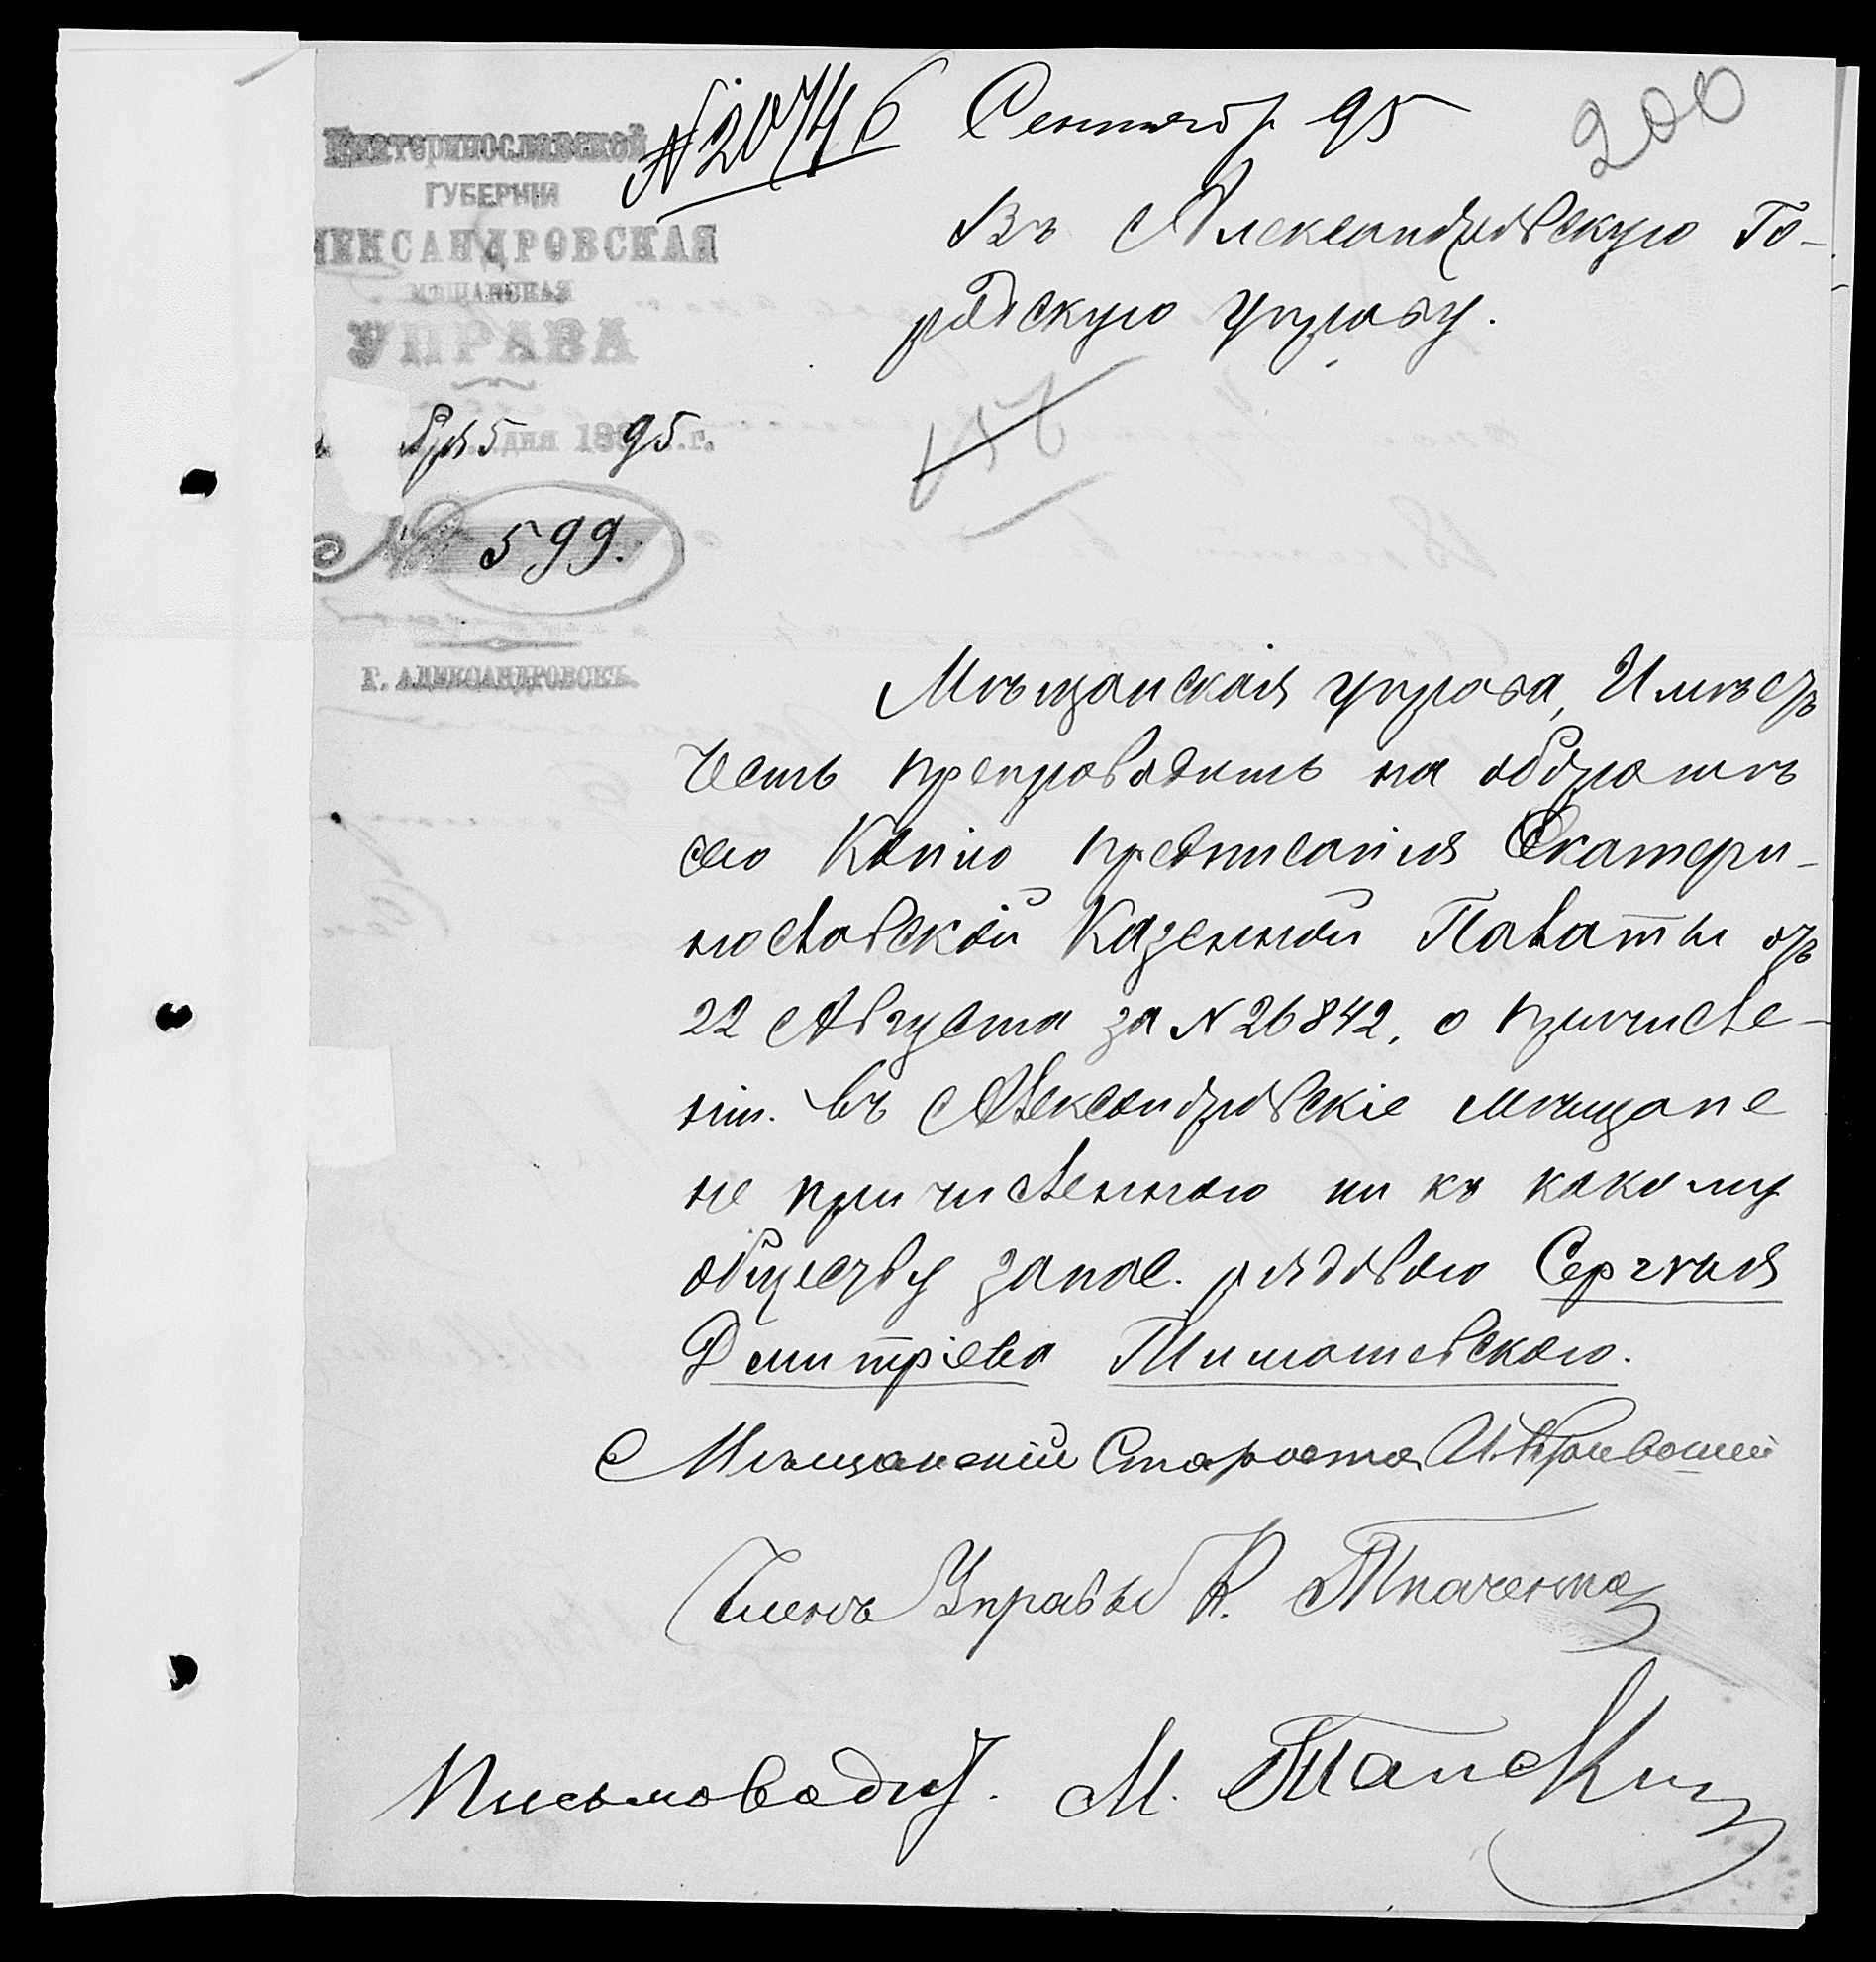 № 2074 6 Сентяб. 95
200
Екатеринославской
ГУБЕРНІИ
АЛЕКСАНДРОВСКАЯ
МѢЩАНСКАЯ
УПРАВА
5 дня 1895 г.
№ 599.
Г. АЛЕКСАНДРОВСКЪ.
Въ Александровскую Го-
родскую управу.
Мѣщанская управа, Имѣетъ
честь препроводить на оборотѣ
сего Копію предписанія Екатери-
нославской Казенной Палаты отъ
22 Августа за N 26842, о причисле-
ніи въ Александровскіе мѣщане
не причисленного ни къ какому
обществу запас. рядового Сергѣя
Дмитріева Тимошевского.
Мѣщанскій Староста
Членъ Управы К. Ткаченко
Письмоводит. М.